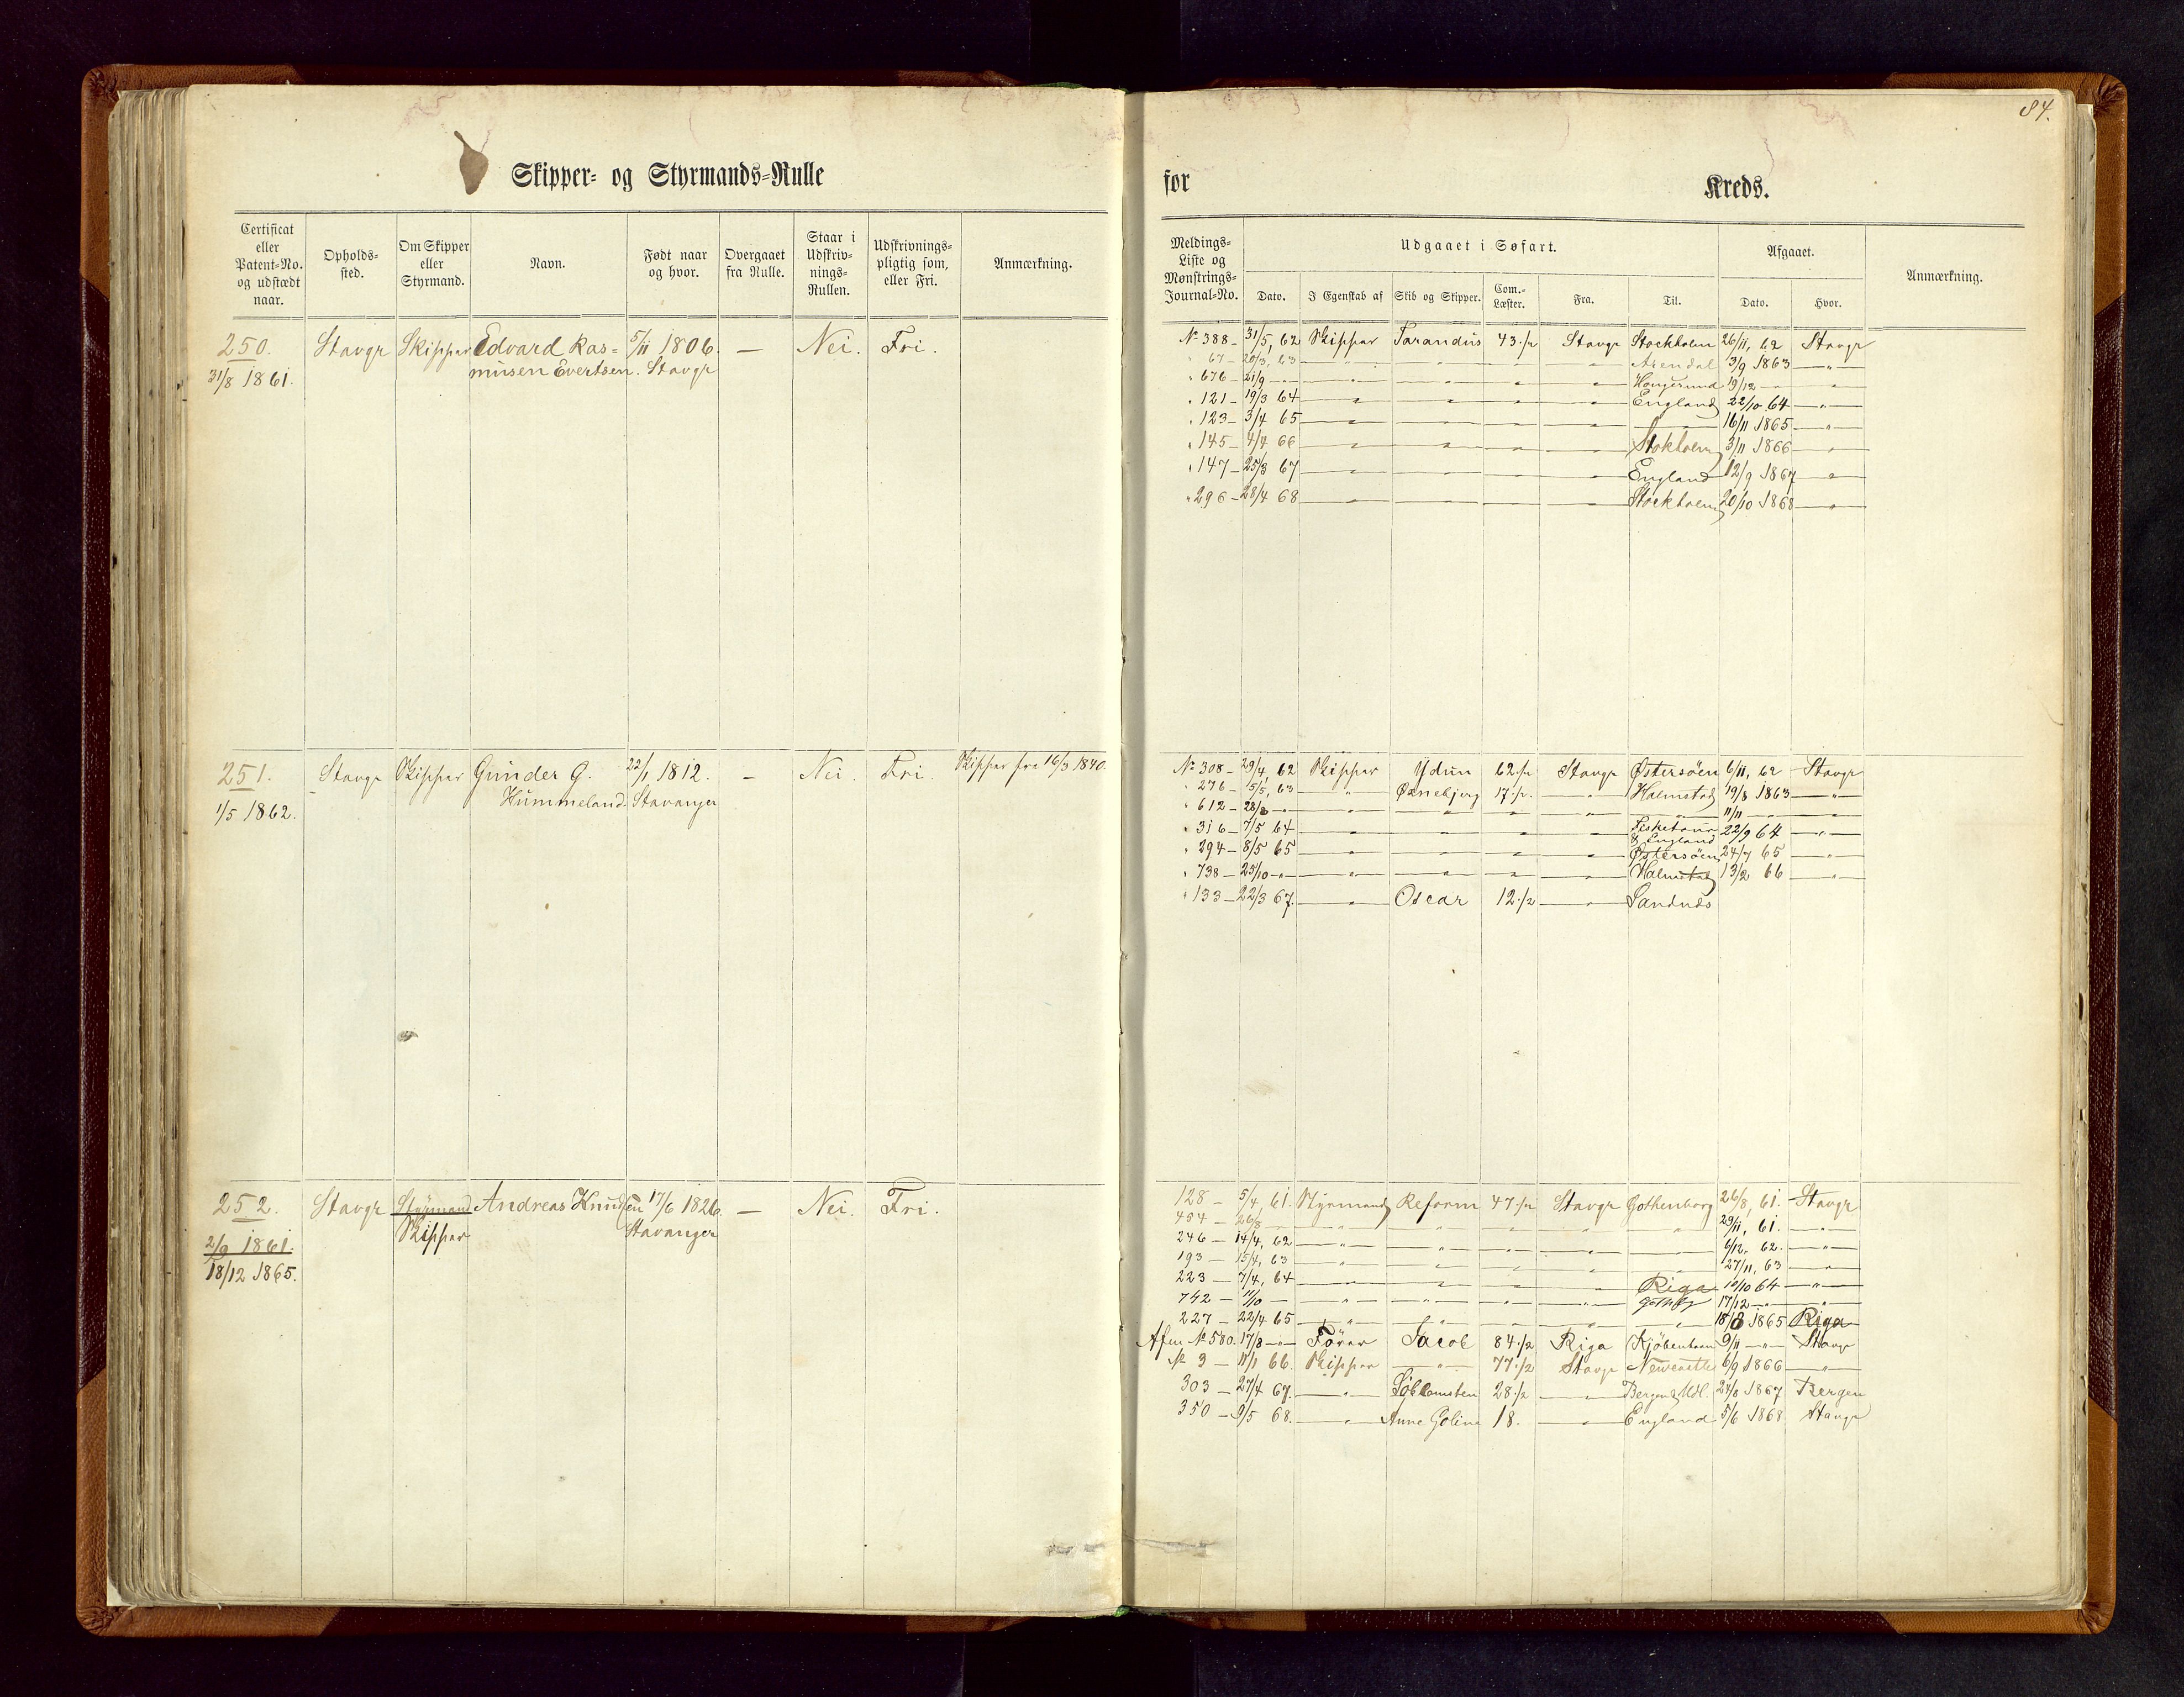 84.
Skipper- og Styrmands-Rulle
for Kreds.
Certificat eller Patent-No. og udstædt naar.
Opholds-sted.
Om Skipper eller Styrmand.
Navn.
Født naar og hvor.
Overgaaet fra Rulle.
Staar i Udskriv-nings-Rullen.
Udskrivnings-pligtig som, eller Fri.
Anmærkning.
Meldings-Liste og Mønstrings-Journal-No.
Udgaaet i Søfart.
Dato.
I Egenskab af
Skib og Skipper.
Com.-Læster.
Fra.
Til.
Afgaaet.
Dato.
Hvor.
Anmærkning.
250. Stavgr Skipper Edvard Ras= 5/11 1806. — Nei. Fri.
31/8 1861. musen Evertsen. Stavgr
No 388 — 31/5, 62 Skipper Tarandus 43 ./2 Stavgr Stockholm 26/11, 62 Stavgr
" 67 — 20/3, 63 — " — " — " — " Arendal 3/9 1863 — " —
" 676 — 21/9 — " — " — " — " — 19/12 — "
" 121 — 19/3 64 — " — " — " — " England 22/10 64 — " —
" 123 — 3/4 65 — " — " — " — " — " — 16/11 1865 — " —
" 145 — 4/4 66 — " — " — " — " Stokholm 3/11 1866 — " —
" 147 — 25/3 67 — " — " — " — " England 12/9 1867 — " —
" 296 — 28/4 68 — " — " — " — " Stockholm 20/10 1868 — " —
251. Stavgr Skipper Gunder G. 22/1 1812. — Nei. Fri Skipper fra 16/3 1840.
1/5 1862. Hummeland. Stavanger
No 308 — 29/4, 62 Skipper Ydun 62 ./2 Stavgr Østersöen 6/11, 62 Stavgr
" 276 — 5/5, 63 — " — Øxnebjerg 17 ./2. — " — Halmstad 19/8 1863 — " —
" 612 — 28/8 — " — " — " — " — " — " — 11/11 — " —
" 316 — 7/5 64 — " — " — " — " 22/9 64 — " —
& England
" 294 — 8/5 65 — " — " — " — " Østersöen 24/7 65 — " —
" 738 — 25/10 — " — " — " — " — " Halmstad 13/2 66 — " —
" 133 — 22/3 67. — " — Oscar 12 ./2 — " — Sandnæs
252. Stavgr Styrmand Andreas Knudsen 17/6 1826. — Nei. Fri.
Skipper Stavanger
2/9 1861.
18/12 1865.
128 — 5/4, 61. Styrmand Reform 47 ./2 Stavgr Gothenborg 26/8, 61. Stavgr
454 — 26/8 — " — " — " — " — " 29/11, 61. — " —
246 — 14/4, 62 — " — " — " — " — " 6/12, 62. — " —
193 — 15/4, 63 — " — " — " — " — " 27/11, 63 — " —
223 — 7/4, 64 — " — " — " — " Riga 10/10 64 — " —
742 — 11/10 — " — " — " — " Gothbg 17/12 — " — " —
227 — 22/4 65 — " — " — " — " — " 18/8 1865 Riga
Afm No 580. 17/8 — " — Förer Jacob 84 ./2 Riga Kjöbenhavn 9/11 — " — Stavgr
No 9 — 11/1 66. Skipper — " — 77 ./2 Stavgr Newcastle 6/9 1866 — " —
303 — 27/4 67. — " — Söblomsten 28 ./2 — " — Bergen & Mdl. 27/8 1867 Bergen
350 — 9/5 68. — " — Anne Goline 18. — " — England 5/6 1868 Stavgr